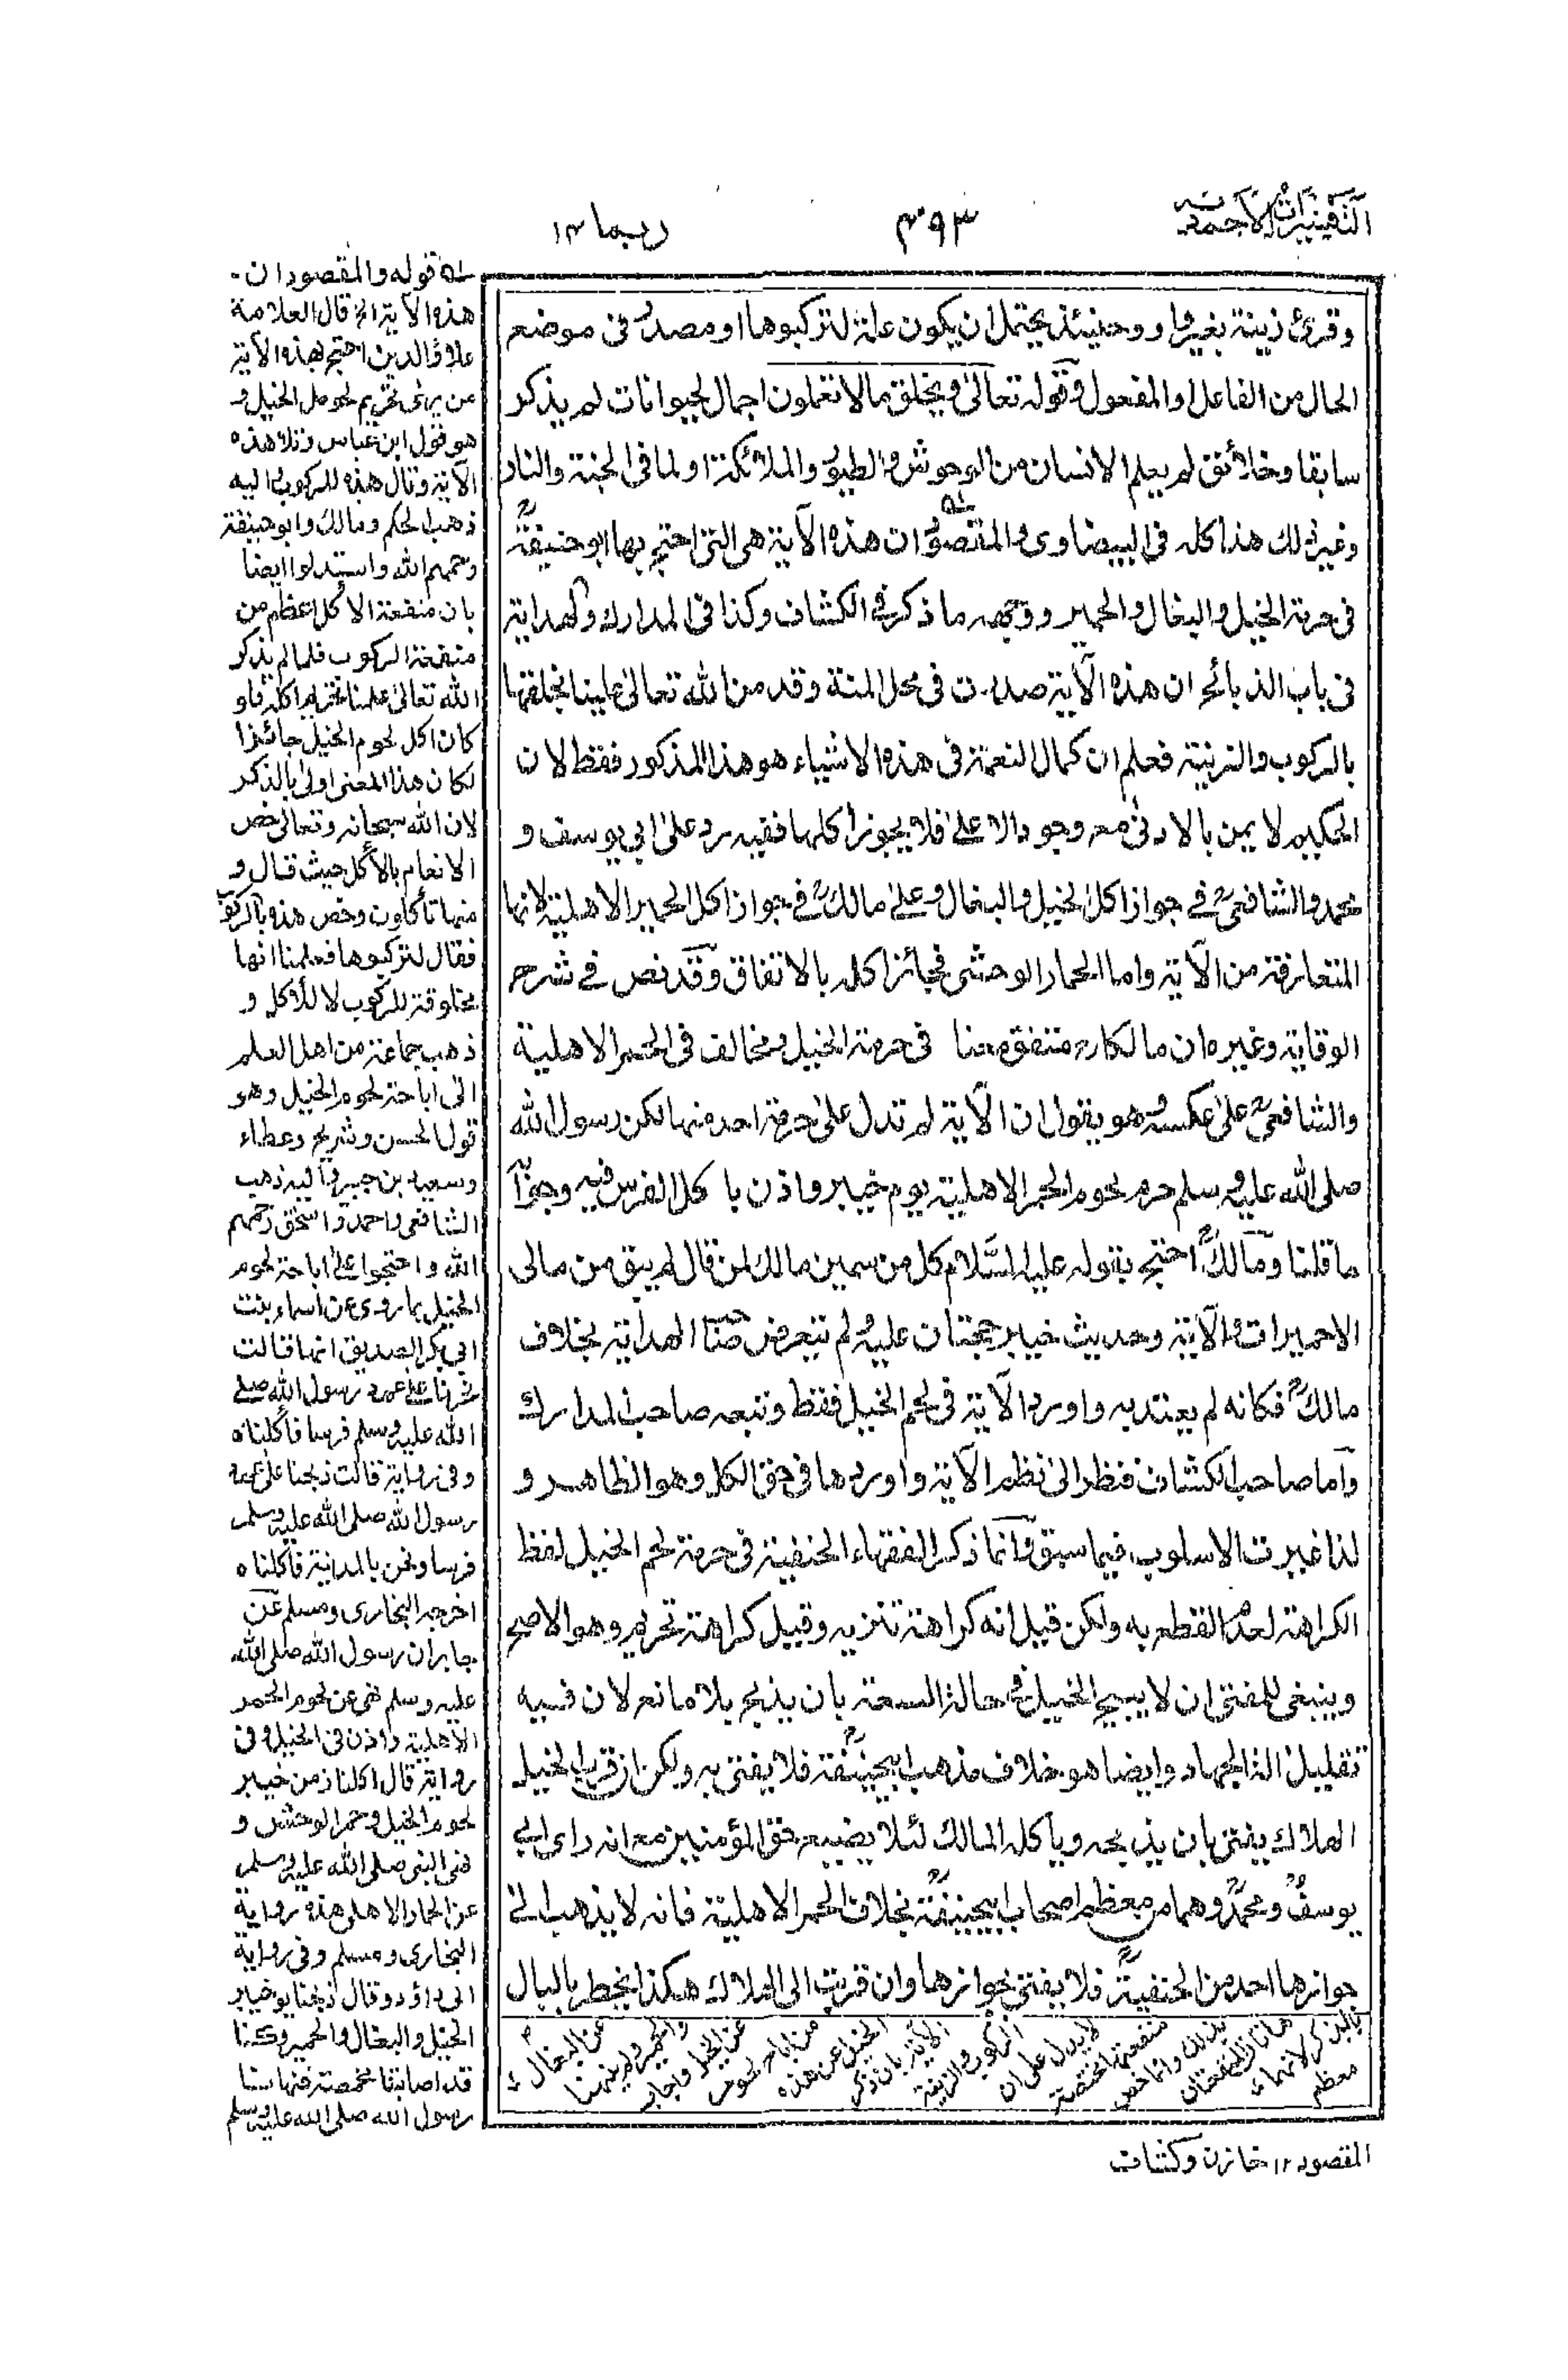 التفسيرات الأحمدية
٤٩٣
ربما ١٤
وقرئ زينة بغير واو وحينئذ يحتمل ان يكون علة لتركبوها او مصدر في موضع
الحال من الفاعل او المفعول وقوله تعالى ويخلق ما لا تعلمون اجمال لحيوانات لم يذكر
سابقا وخلائق لم يعلم الانسان من الوحوش والطيور والملائكة او لما في الجنة والنار
وغير ذلك هذا كله في البيضاوى والمقصود ان هذه الآية هي التي احتج بها ابو حنيفة
في حرمة الخيل والبغال والحمير ووجهه ما ذكر في الكشاف وكذا في المدارك والهداية
في باب الذبائح ان هذه الآية صدرت في محل المنة وقد من الله تعالى علينا بخلقتها
بالركوب والزينة فعلم ان كمال النعمة في هذه الاشياء هو هذا المذكور فقط لان
الحكيم لا يمن بالادنى مع وجود الاعلى فلا يجوز اكلها ففيه رد على ابي يوسف و
محمد والشافعي في جواز اكل الخيل والبغال وعلى مالك في جواز اكل الحمير الاهلية لانها
المتعارفة من الآية واما الحمار الوحشى فجائز اكله بالاتفاق وقد نص في شرح
الوقاية وغيره ان مالكا متفق معنا في حرمة الخيل ومخالف في الحمر الاهلية
والشافعي على عكسه هو يقول ان الآية لم تدل على حرمة احد منها لكن رسول الله
صلى الله عليه وسلم حرم لحوم الحمر الاهلية يوم خيبر واذن باكل الفرس فيه وجوابه
ما قلنا ومالك احتج بقوله عليه السلام كل من سمين مالك لمن قال لم يبق من مالى
الا حميرات والآية وحديث خيبر حجتان عليه ولم يتعرض صاحب الهداية بخلاف
مالك فكانه لم يعتد به واورد الآية في لحم الخيل فقط وتبعه صاحب المدارك
واما صاحب الكشاف فنظر الى نظم الآية واوردها في حق الكل وهو الظاهر و
لذا غيرت الاسلوب فيما سبق وانما ذكر الفقهاء الحنفية في حرمة لحم الخيل لفظ
الكراهة لعدم القطع به ولكن قيل انه كراهة تنزيه وقيل كراهة تحريم وهو الاصح
وينبغي للمفتى ان لا يبيح الخيل في حالة السعة بان يذبح بلا مانع لان فيه
تقليل آلة الجهاد وايضا هو خلاف مذهب ابيحنيفة فلا يفتى به ولكن ان قرب الخيل
الهلاك يفتى بان يذبحه وياكله المالك لئلا يضيع حق المؤمنين مع انه راى ابي
يوسف ومحمد وهما من معظم اصحاب ابيحنيفة بخلاف الحمر الاهلية فانه لا يذهب الى
جوازها احد من الحنفية فلا يفتى بجوازها وان قربت الى الهلاك هكذا يخطر بالبال
قوله والمقصود ان
هذه الآية الخ قال العلامة
علاؤ الدين احتج بهذه الآية
من يرى تحريم لحوم الخيل و
هو قول ابن عباس وتلا هذه
الآية وقال هذه للركوب واليه
ذهب الحكم ومالك وابو حنيفة
رحمهم الله واستدلوا ايضا
بان منفعة الاكل اعظم من
منفعة الركوب فلما لم يذكر
الله تعالى علمنا تحريم اكله فلو
كان اكل لحوم الخيل جائزا
لكان هذا المعنى اولى بالذكر
لان الله سبحانه وتعالى خص
الانعام بالأكل حيث قال و
منها تأكلون وخص هذه بالركوب
فقال لتركبوها فعلمنا انها
مخلوقة للركوب لا للأكل و
ذهب جماعة من اهل العلم
الى اباحة لحوم الخيل وهو
قول الحسن وشريح وعطاء
وسعيد بن جبير واليه ذهب
الشافعي واحمد واسحق رحمهم
الله واحتجوا على اباحة لحوم
الخيل بما روى عن اسماء بنت
ابي بكر الصديق انها قالت
نحرنا على عهد رسول الله صلى
الله عليه وسلم فرسا فأكلناه
وفي رواية قالت ذبحنا على عهد
رسول الله صلى الله عليه وسلم
فرسا ونحن بالمدينة فأكلناه
اخرجه البخارى ومسلم عن
جابر ان رسول الله صلى الله
عليه وسلم نهى عن لحوم الحمر
الأهلية واذن في الخيل وفي
رواية قال اكلنا زمن خيبر
لحوم الخيل وحمر الوحش و
نهى النبي صلى الله عليه وسلم
عن الحمار الاهلى هذه رواية
البخارى ومسلم وفي رواية
ابى داؤد وقال ذبحنا يوم خيبر
الخيل والبغال والحمير وكنا
قد اصابتنا مخمصة فنهانا
رسول الله صلى الله عليه وسلم
عن البغال
والحمير ولم ينهنا
عن الخيل واجاب
من اباح لحوم
الخيل عن هذه
الآية بان ذكر
الركوب والزينة
لا يدل على ان
منفعتها مختصة
بذلك وانما خص
هاتان المنفعتان
بالذكر لانهما
معظم
المقصود ١٢ خازن وكشاف